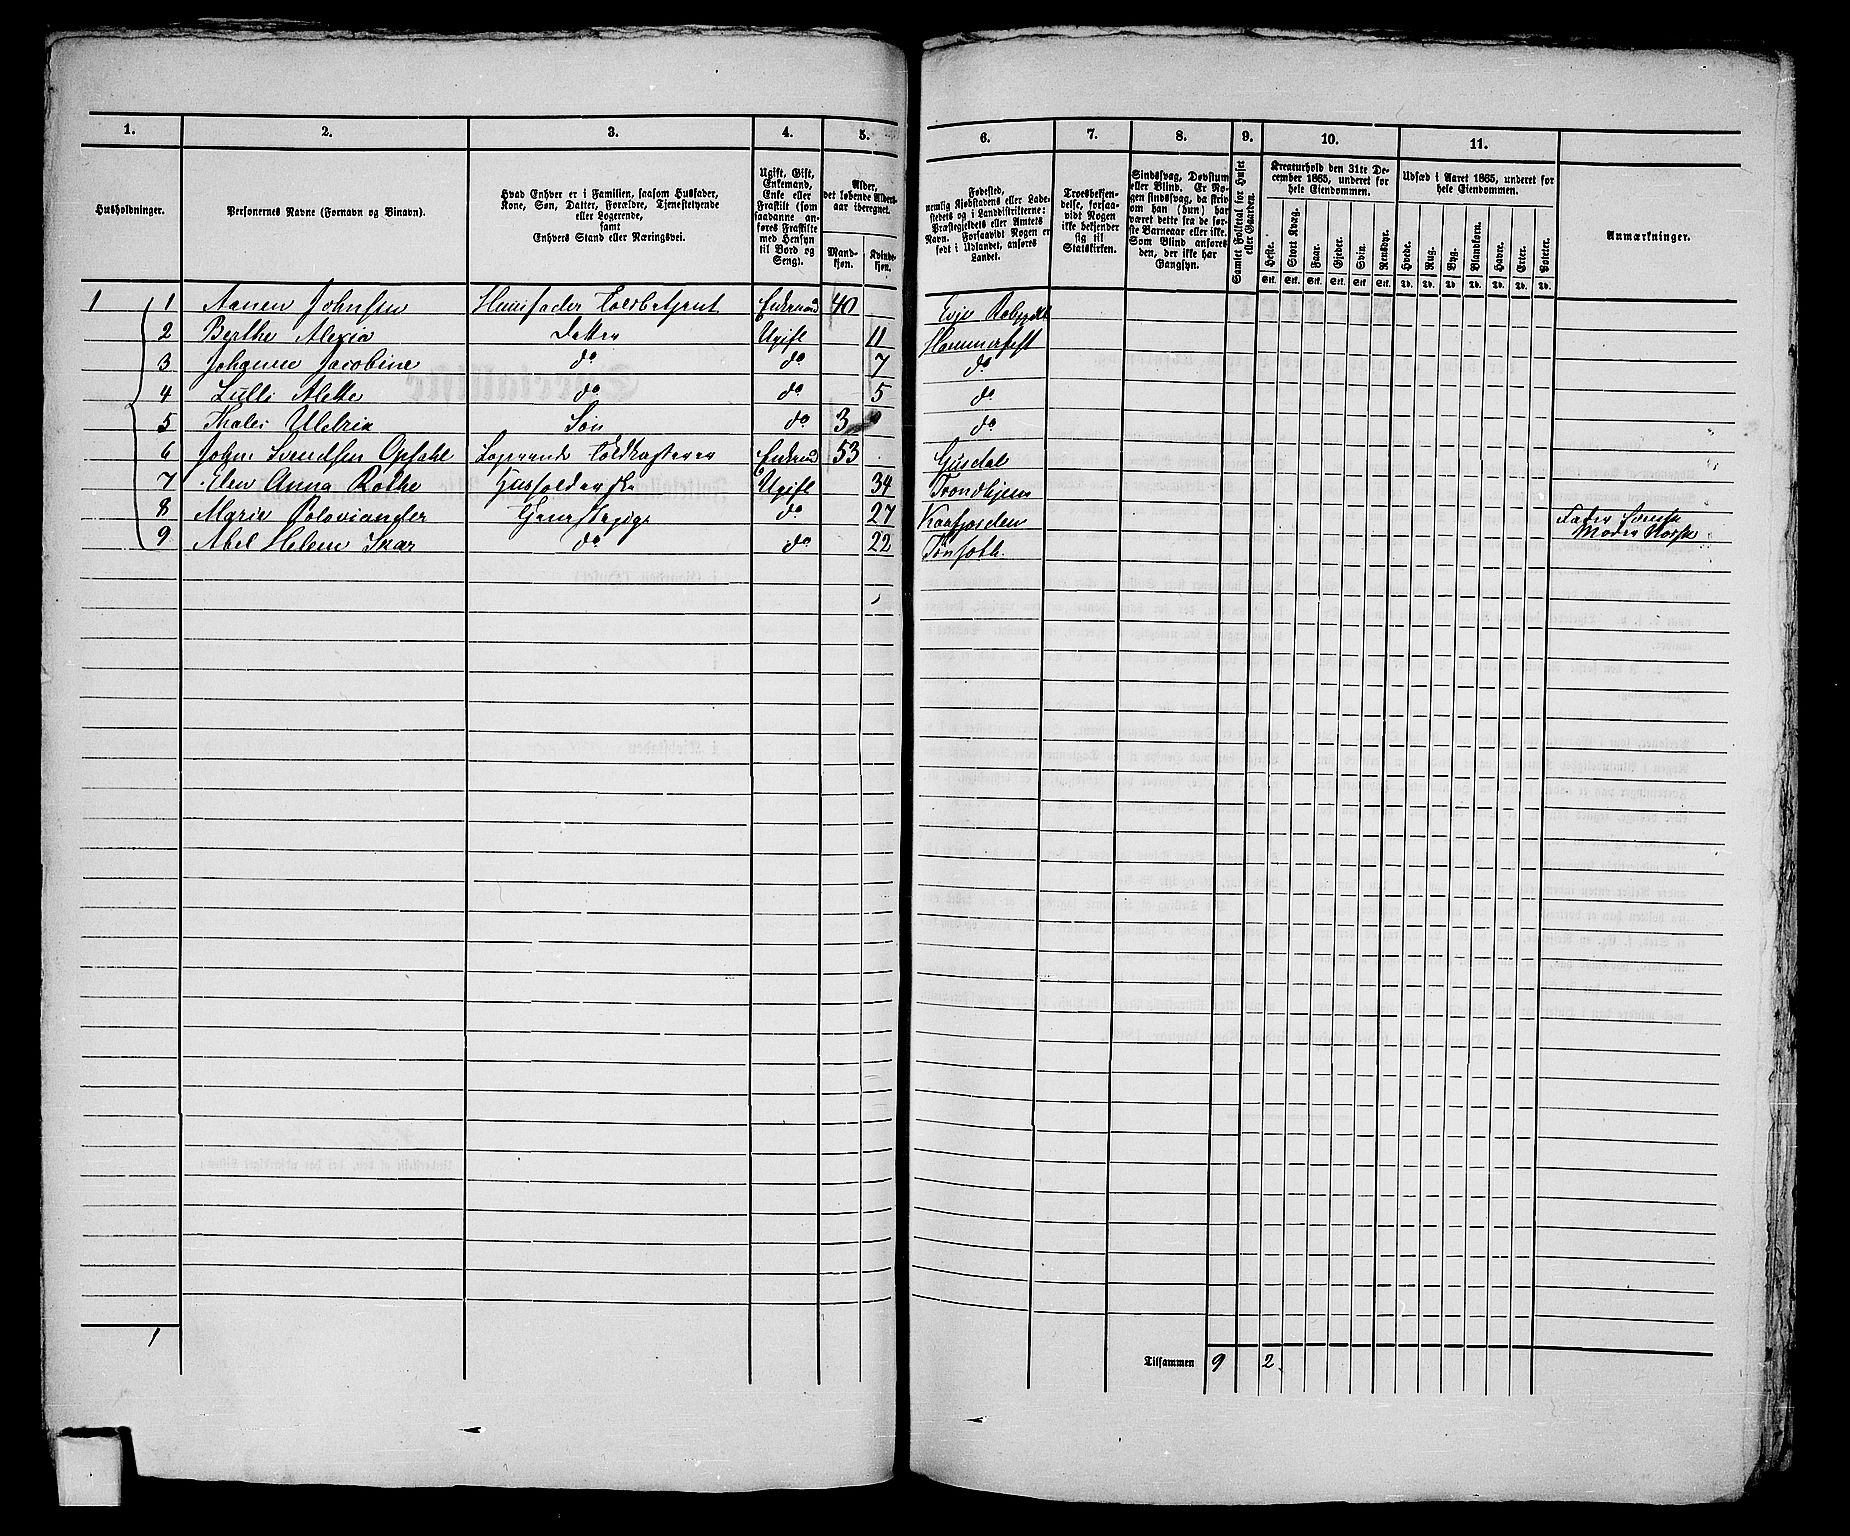 1. 2. 3. 4. 5. 6. 7. 8. 9. 10. 11.
Husholdninger.
Personernes Navne (Fornavn og Binavn).
Hvad Enhver er i Familien, saasom Husfader,
Kone, Søn, Datter, Forældre, Tjenestetyende
eller Logerende,
samt
Enhvers Stand eller Næringsvei.
Ugift, Gift,
Enkemand,
Enke eller
Fraskilt (som
saadanne an-
føres Fraskilte
med Hensyn
til Bord og
Seng).
Alder,
det løbende Alders-
aar iberegnet.
Mand-
kjøn.
Kvinde-
kjøn.
Fødested,
nemlig Kjøbstadens eller Lade-
stedets og i Landdistrikterne:
Præstegjeldets eller Amtets
Navn. Forsaavidt Nogen er
født i Udlandet, anføres
Landet.
Troesbekjen-
delse, forsaa-
vidt Nogen
ikke bekjender
sig til
Statskirken.
Sindssvag, Døvstum
eller Blind. Er No-
gen sindssvag, da skriv
om han (hun) har
været dette fra de før-
ste Barneaar eller ikke.
Som Blind anføres
den, der ikke har
Gangsyn.
Samlet Folketal for Huset
eller Gaarden.
Kreaturhold den 31te De-
cember 1865, underet for
hele Eiendommen.
Heste. Stort Kvæg. Faar. Gjeder. Svin. Rensdyr.
Stk. Stk. Stk. Stk. Stk. Stk.
Udsæd i Aaret 1865, underet for
hele Eiendommen.
Hvede. Rug. Byg. Blandkorn. Havre. Erter. Poteter.
Td. Td. Td. Td. Td. Td. Td.
Anmærkninger.
1 1 Aanen Johnsen Huusfader Toldbetjent Enkemand 40 Evje
2 Berthe Alexia Datter Ugift 11 Hammerfest
3 Johanne Jacobine do do 7 do
4 Lulli Alette do do 5 do
5 Ulrik Søn do 3 do
6 John Svendsen Opsahl Logerende Enkemd 53 Gusdal
7 Elen Anna Rothe Husholderske Ugift 34 Trondhjem
8 Maria Poloviander Tjenestepige do 27 Kaafjorden Fader Svensk
Moder Norsk
9 Abel Helene Skar do do 22
1
Tilsammen 9 2